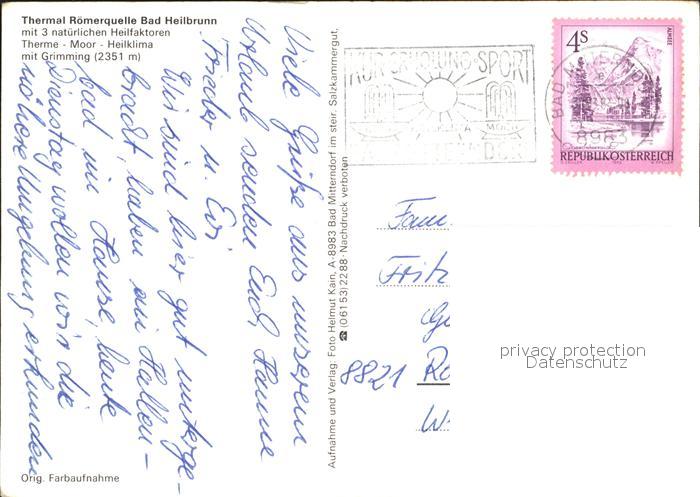 Thermal Römerquelle Bad Heilbrunn
mit 3 natürlichen Heilfaktoren
Therme - Moor - Heilklima
mit Grimming (2351 m)
Viele Grüße aus unserem
Urlaub senden Euch, Hanne
Frieder u. Evi
Wir sind hier gut unterge-
bracht, haben ein Hallen-
bad im Hause, heute
Dienstag wollen wir die
nähere Umgebung erkunden
Orig. Farbaufnahme
Aufnahme und Verlag: Foto Helmut Kain, A-8983 Bad Mitterndorf im steir. Salzkammergut,
☎ (06153) 2288 · Nachdruck verboten
KUR·ERHOLUNG·SPORT
MOOR
4S
ALMSEE
REPUBLIK ÖSTERREICH
8983
Fam.
Fritz
8821
privacy protection
Datenschutz